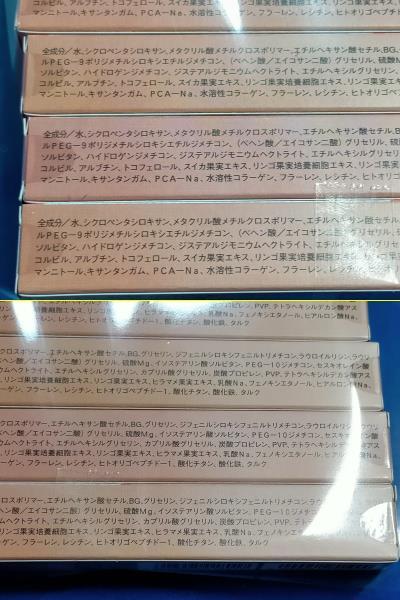 コルビル、アルブチン、トコフェロール、スイカ果実エキス、リンゴ果実培養細胞エキス、リ
マンニトール、キサンタンガム、PCAーNa、水溶性コラーゲン、フラーレン、レシチン、ヒトオリゴペプチ
全成分／水、シクロペンタシロキサン、メタクリル酸メチルクロスポリマー、エチルヘキサン酸セチル、BG、
ルPEGー9ポリジメチルシロキシエチルジメチコン、(ベヘン酸／エイコサン二酸)グリセリル、硫酸M
ソルビタン、ハイドロゲンジメチコン、ジステアルジモニウムヘクトライト、エチルヘキシルグリセリン
コルビル、アルブチン、トコフェロール、スイカ果実エキス、リンゴ果実培養細胞エキス、リンゴ果実エキ
マンニトール、キサンタンガム、PCAーNa、水溶性コラーゲン、フラーレン、レシチン、ヒトオリゴペプチド
全成分／水、シクロペンタシロキサン、メタクリル酸メチルクロスポリマー、エチルヘキサン酸セチル、B
ルPEGー9ポリジメチルシロキシエチルジメチコン、(ベヘン酸／エイコサン二酸)グリセリル、硫酸
ソルビタン、ハイドロゲンジメチコン、ジステアルジモニウムヘクトライト、エチルヘキシルグリセリ
コルビル、アルブチン、トコフェロール、スイカ果実エキス、リンゴ果実培養細胞エキス、リンゴ果実
マンニトール、キサンタンガム、PCAーNa、水溶性コラーゲン、フラーレン、レシチン、ヒトオリ
全成分／水、シクロペンタシロキサン、メタクリル酸メチルクロスポリマー、エチルヘキサン酸セチル
ルPEGー9ポリジメチルシロキシエチルジメチコン、(ベヘン酸／エイコサン二酸)グリセリル、
ソルビタン、ハイドロゲンジメチコン、ジステアルジモニウムヘクトライト、エチルヘキシルグリ
コルビル、アルブチン、トコフェロール、スイカ果実エキス、リンゴ果実培養細胞エキス、リンゴ
マンニトール、キサンタンガム、PCAーNa、水溶性コラーゲン、フラーレン、レシチン、ヒ
エチルヘキシルグリセリン、カプリル酸グリセリル、炭酸プロピレン、PVP、テトラヘキシルデカン酸アス
培養細胞エキス、リンゴ果実エキス、ヒラマメ果実エキス、乳酸Na、フェノキシエタノール、ヒアルロン酸Na、
ーレン、レシチン、ヒトオリゴペプチドー1、酸化チタン、酸化鉄、タルク
クロスポリマー、エチルヘキサン酸セチル、BG、グリセリン、ジフェニルシロキシフェニルトリメチコン、ラウロイルリシン、ラウリ
ヘン酸／エイコサン二酸)グリセリル、硫酸Mg、イソステアリン酸ソルビタン、PEGー10ジメチコン、セスキオレイン酸
ウムヘクトライト、エチルヘキシルグリセリン、カプリル酸グリセリル、炭酸プロピレン、PVP、テトラヘキシルデカン酸アス
、リンゴ果実培養細胞エキス、リンゴ果実エキス、ヒラマメ果実エキス、乳酸Na、フェノキシエタノール、ヒアルロン酸Na、
ーゲン、フラーレン、レシチン、ヒトオリゴペプチドー1、酸化チタン、酸化鉄、タルク
クロスポリマー、エチルヘキサン酸セチル、BG、グリセリン、ジフェニルシロキシフェニルトリメチコン、ラウロイルリシン、
ン酸／エイコサン二酸)グリセリル、硫酸Mg、イソステアリン酸ソルビタン、PEGー10ジメチコン、セスキオレイン酸
ウムヘクトライト、エチルヘキシルグリセリン、カプリル酸グリセリル、炭酸プロピレン、PVP、テトラヘキシルデカン酸
、リンゴ果実培養細胞エキス、リンゴ果実エキス、ヒラマメ果実エキス、乳酸Na、フェノキシエタノール、ヒアルロン酸
ーゲン、フラーレン、レシチン、ヒトオリゴペプチドー1、酸化チタン、酸化鉄、タルク
ロスポリマー、エチルヘキサン酸セチル、BG、グリセリン、ジフェニルシロキシフェニルトリメチコン、ラウロイルリシン
ン酸／エイコサン二酸)グリセリル、硫酸Mg、イソステアリン酸ソルビタン、PEGー10ジメチコン
ムヘクトライト、エチルヘキシルグリセリン、カプリル酸グリセリル、炭酸プロピレン、PVP、テトラ
リンゴ果実培養細胞エキス、リンゴ果実エキス、ヒラマメ果実エキス、乳酸Na、フェノキシエ
ゲン、フラーレン、レシチン、ヒトオリゴペプチドー1、酸化チタン、酸化鉄、タルク